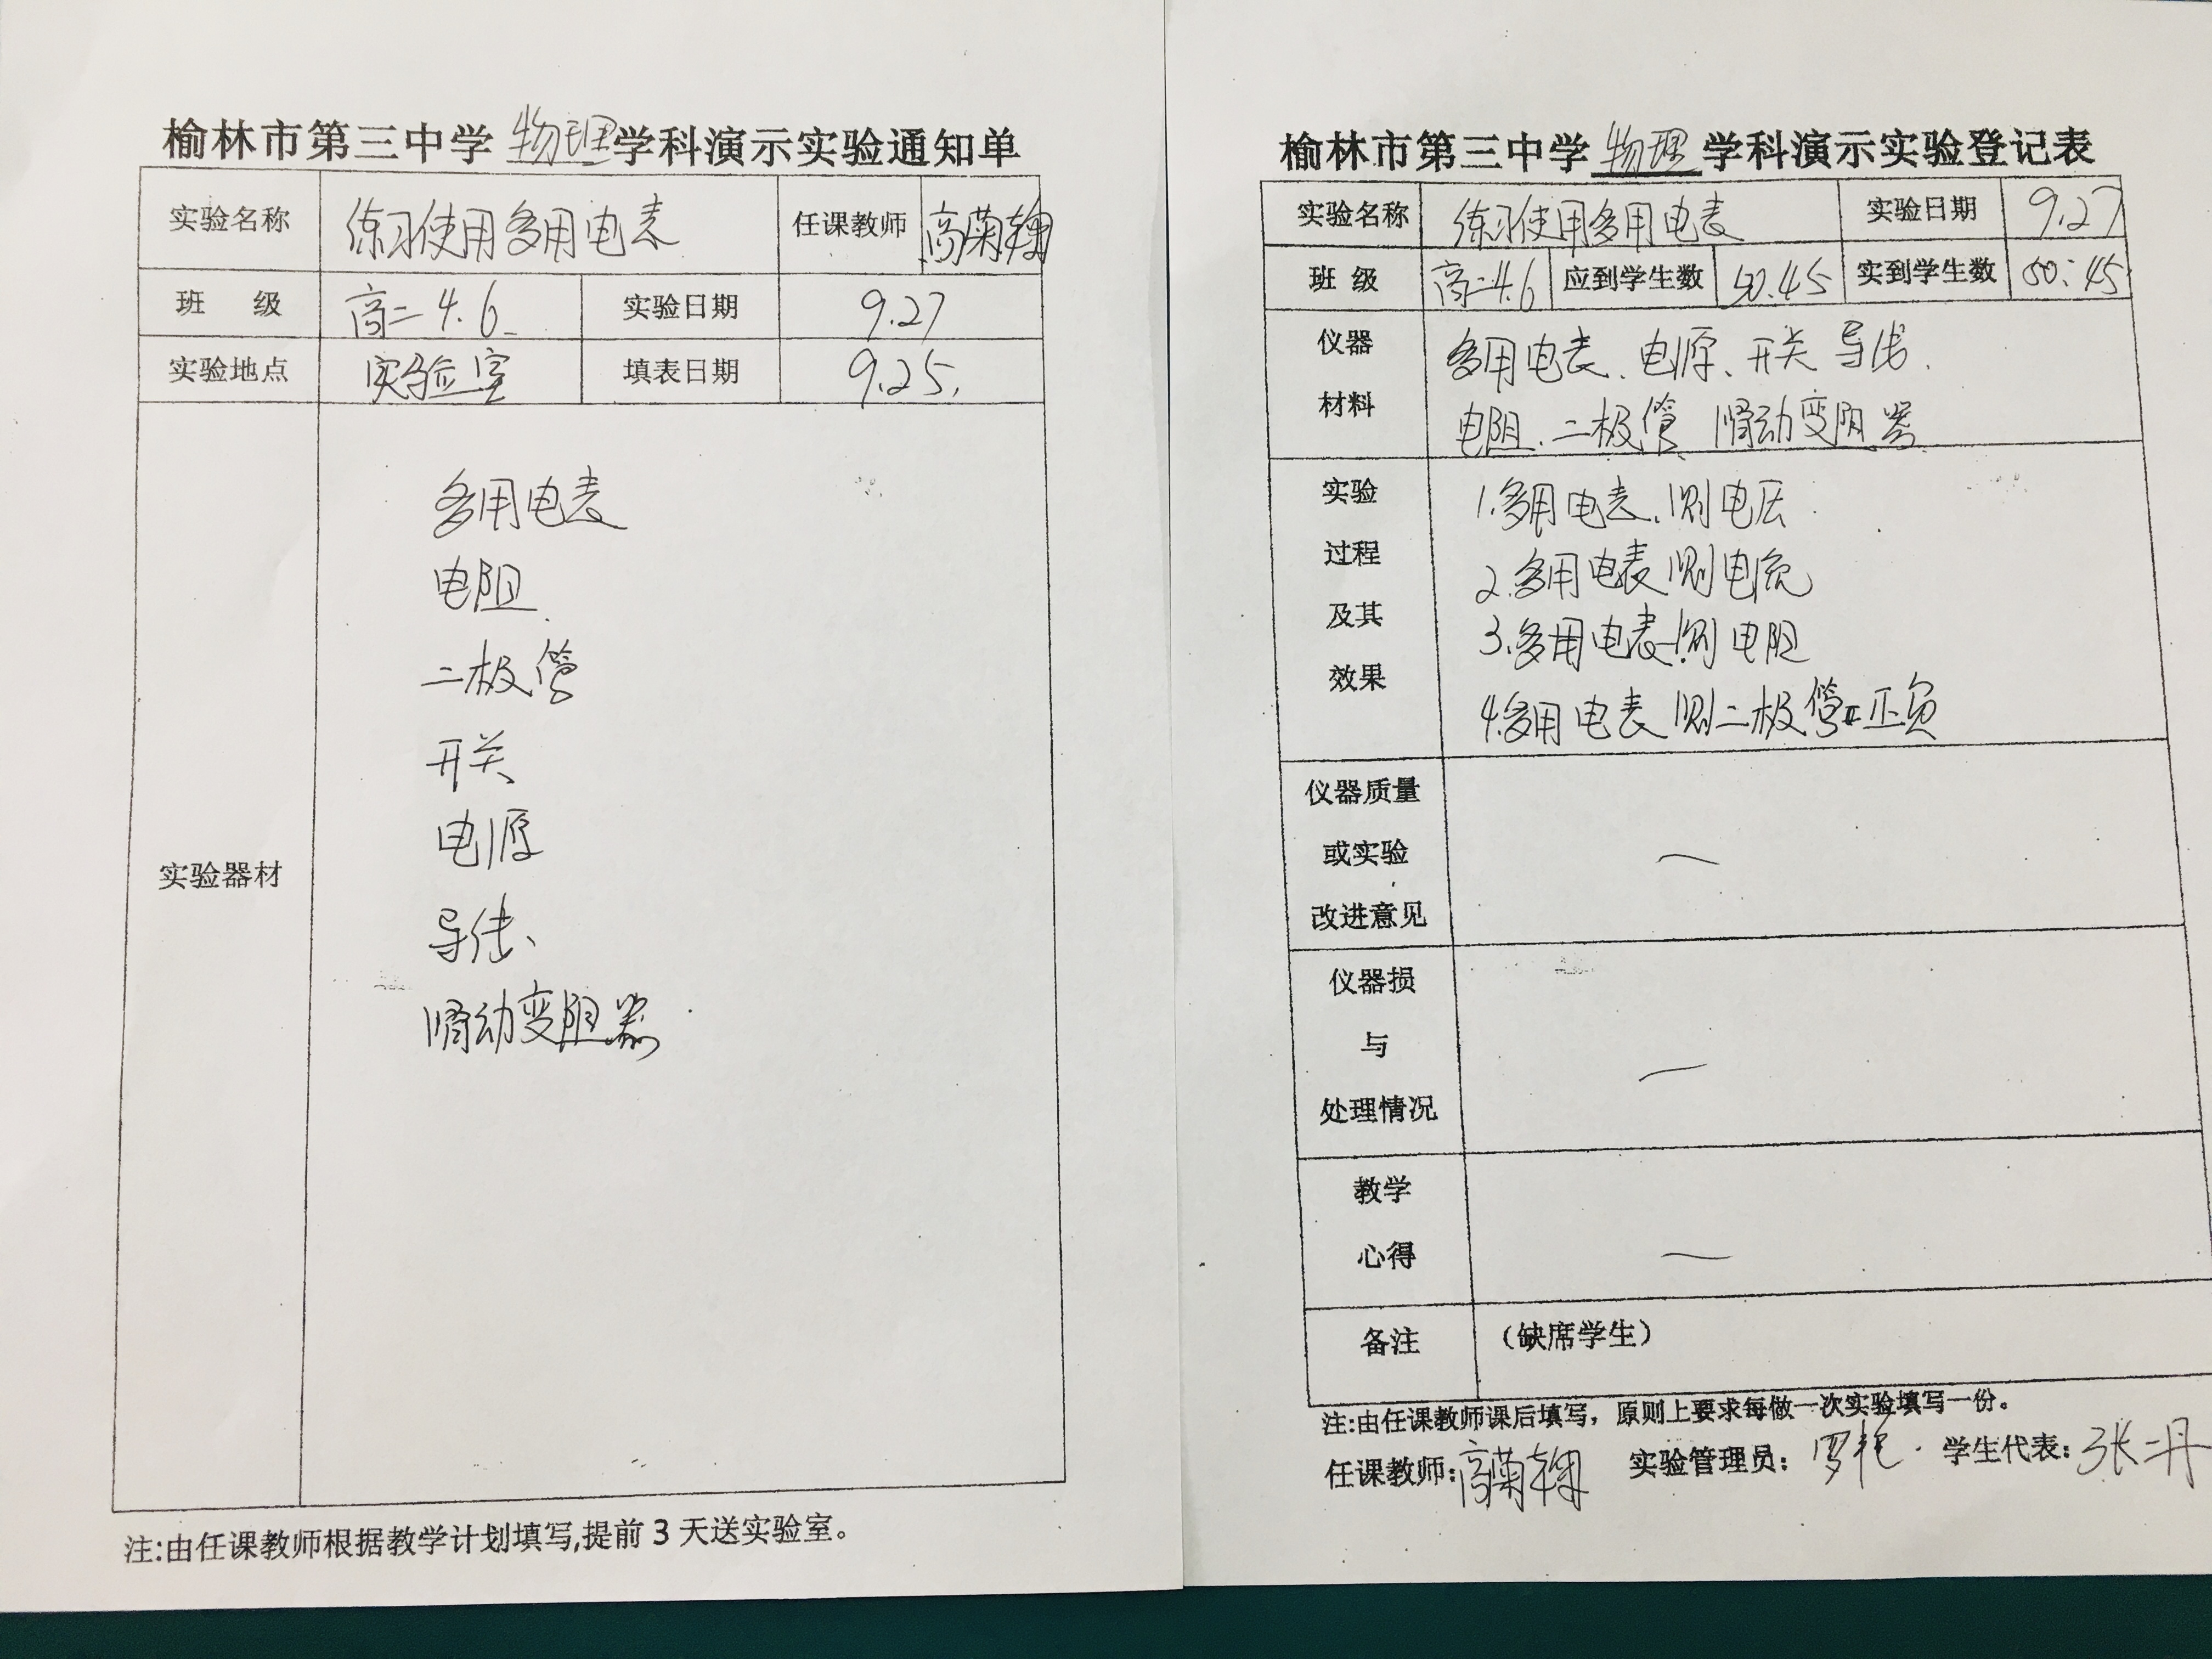 榆林市第三中学物理学科演示实验通知单
实验名称 练习使用多用电表 任课教师 高菊翰
班 级 高二4.6 实验日期 9.27
实验地点 实验室 填表日期 9.25.
实验器材
多用电表
电阻
二极管
开关
电源
导线、
滑动变阻器
注:由任课教师根据教学计划填写,提前3天送实验室。
榆林市第三中学物理学科演示实验登记表
实验名称 练习使用多用电表 实验日期 9.27
班 级 高二4.6 应到学生数 50.45 实到学生数 50:45
仪器
材料
多用电表、电源、开关 导线.
电阻.二极管 滑动变阻器
实验
过程
及其
效果
1.多用电表.测电压
2.多用电表测电流
3.多用电表测电阻
4.多用电表测二极管正负
仪器质量
或实验
改进意见
仪器损
与
处理情况
教学
心得
备注 (缺席学生)
注:由任课教师课后填写，原则上要求每做一次实验填写一份。
任课教师:高菊翰 实验管理员:罗艳. 学生代表:张二丹